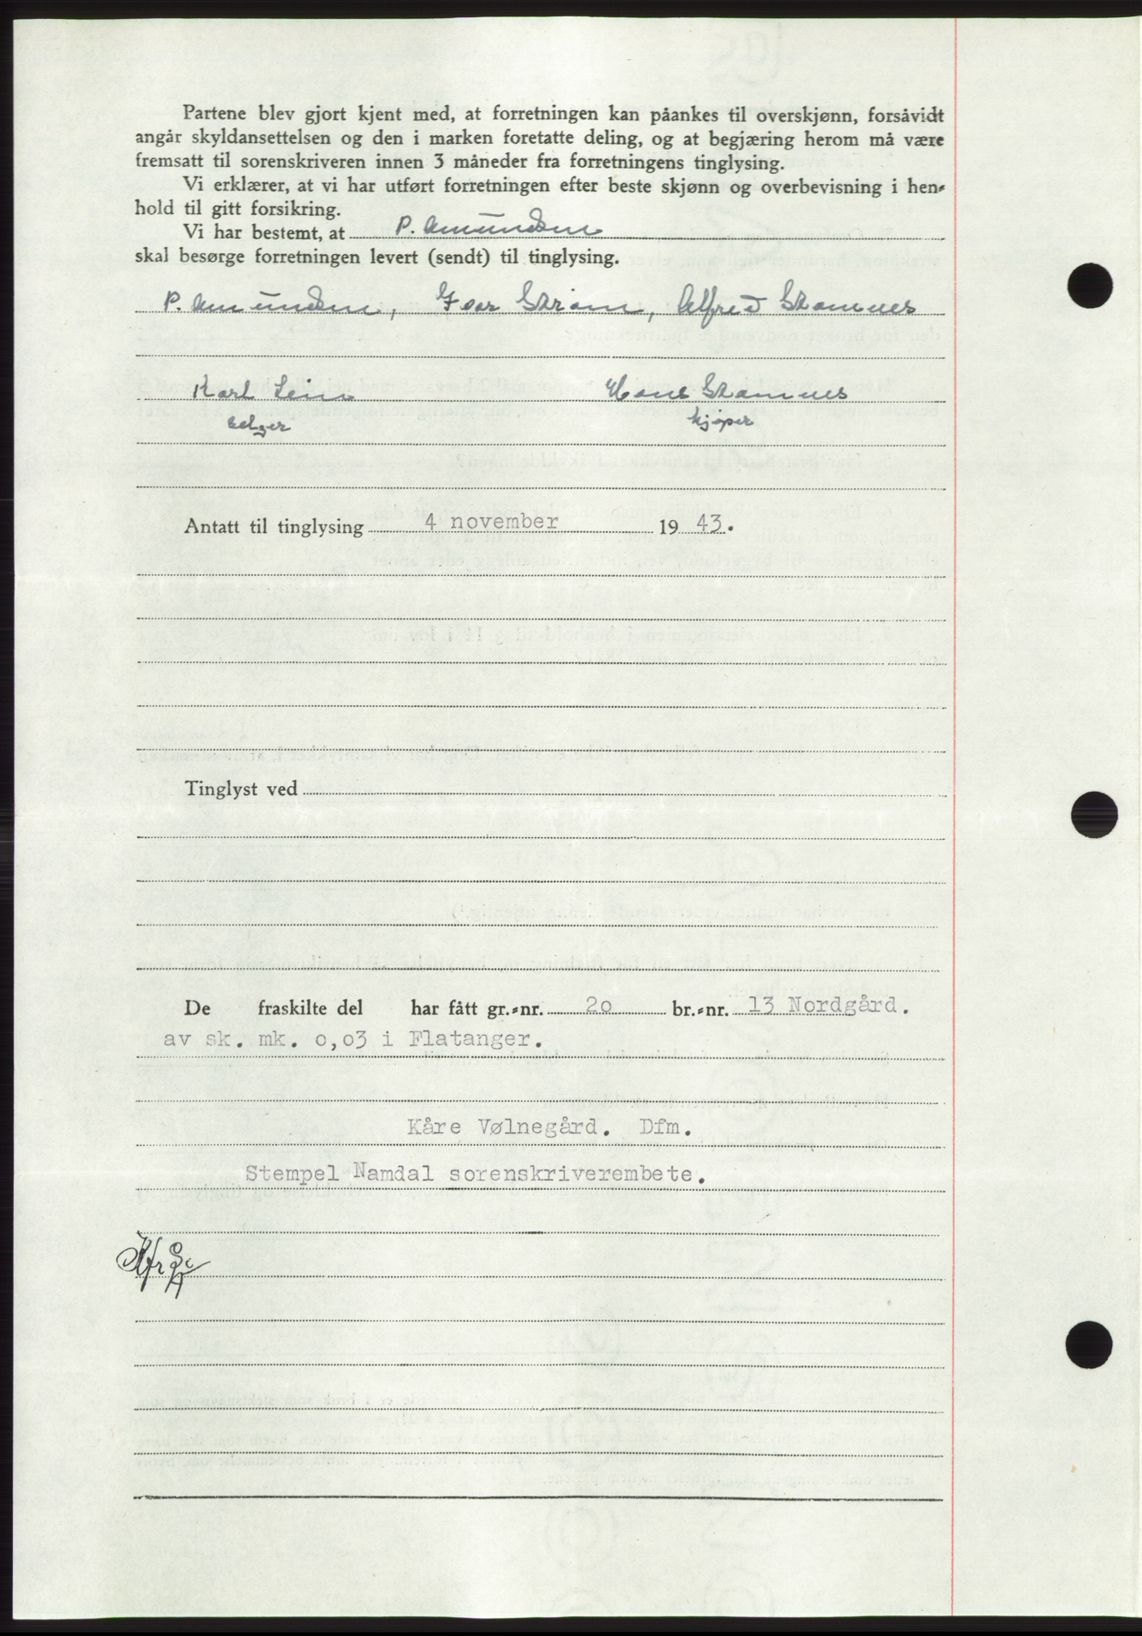 Partene blev gjort kjent med, at forretningen kan påankes til overskjønn, forsåvidt
angår skyldansettelsen og den i marken foretatte deling, og at begjæring herom må være
fremsatt til sorenskriveren innen 3 måneder fra forretningens tinglysing.
Vi erklærer, at vi har utført forretningen efter beste skjønn og overbevisning i hen-
hold til gitt forsikring.
Vi har bestemt, at P. Amundsen
skal besørge forretningen levert (sendt) til tinglysing.
P. Amundsen, Ivar Strøm, Alfred Stamnes
Karl Lein Hans Stamnes
selger kjøper
Antatt til tinglysing 4 november 19 43.
Tinglyst ved
De fraskilte del har fått gr.-nr. 20 br.-nr. 13 Nordgård.
av sk. mk. 0,03 i Flatanger.
Kåre Vølnegård. Dfm.
Stempel Namdal sorenskriverembete.